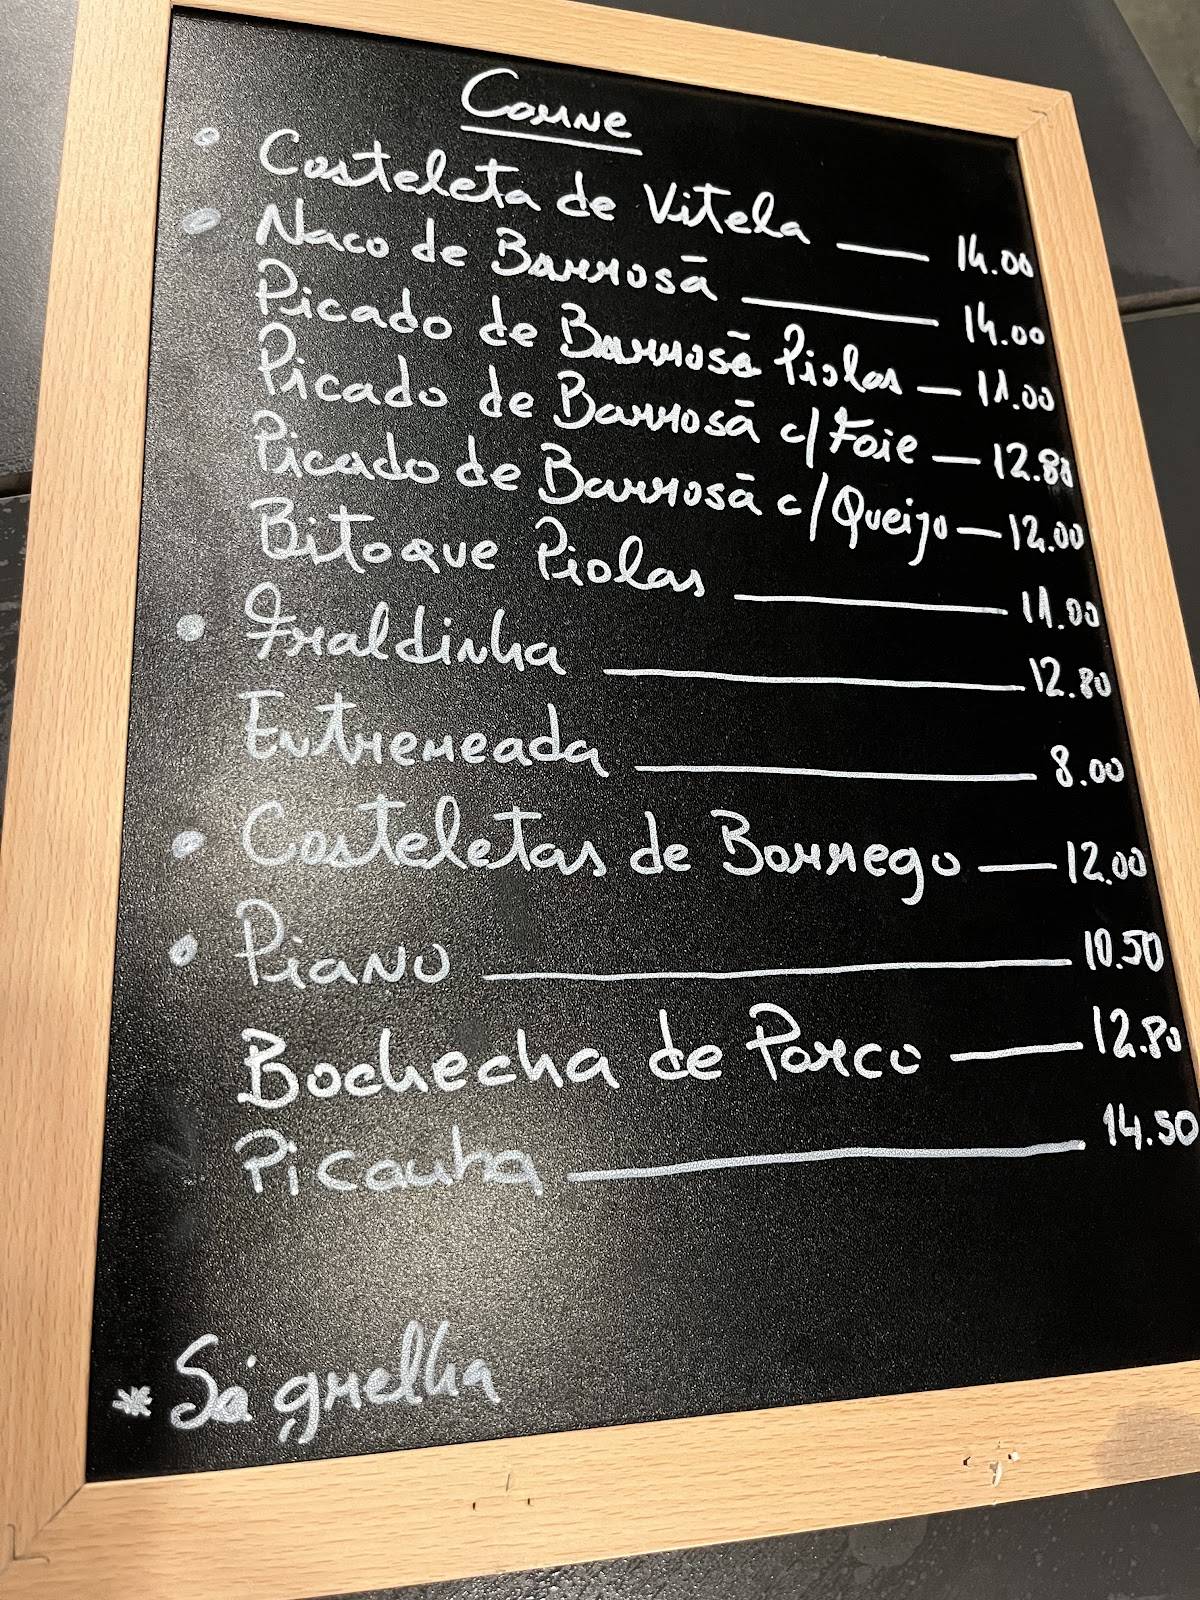 Carne
• Costeleta de Vitela — 14.00
• Naco de Barrosã — 14.00
Picado de Barrosã Piolas — 11.00
Picado de Barrosã c/ Foie — 12.80
Picado de Barrosã c/ Queijo — 12.00
Bitoque Piolas — 11.00
• Fraldinha — 12.80
Entremeada — 8.00
• Costeletas de Borrego — 12.00
• Piano — 10.50
Bochecha de Porco — 12.80
Picanha — 14.50
* Só grelha